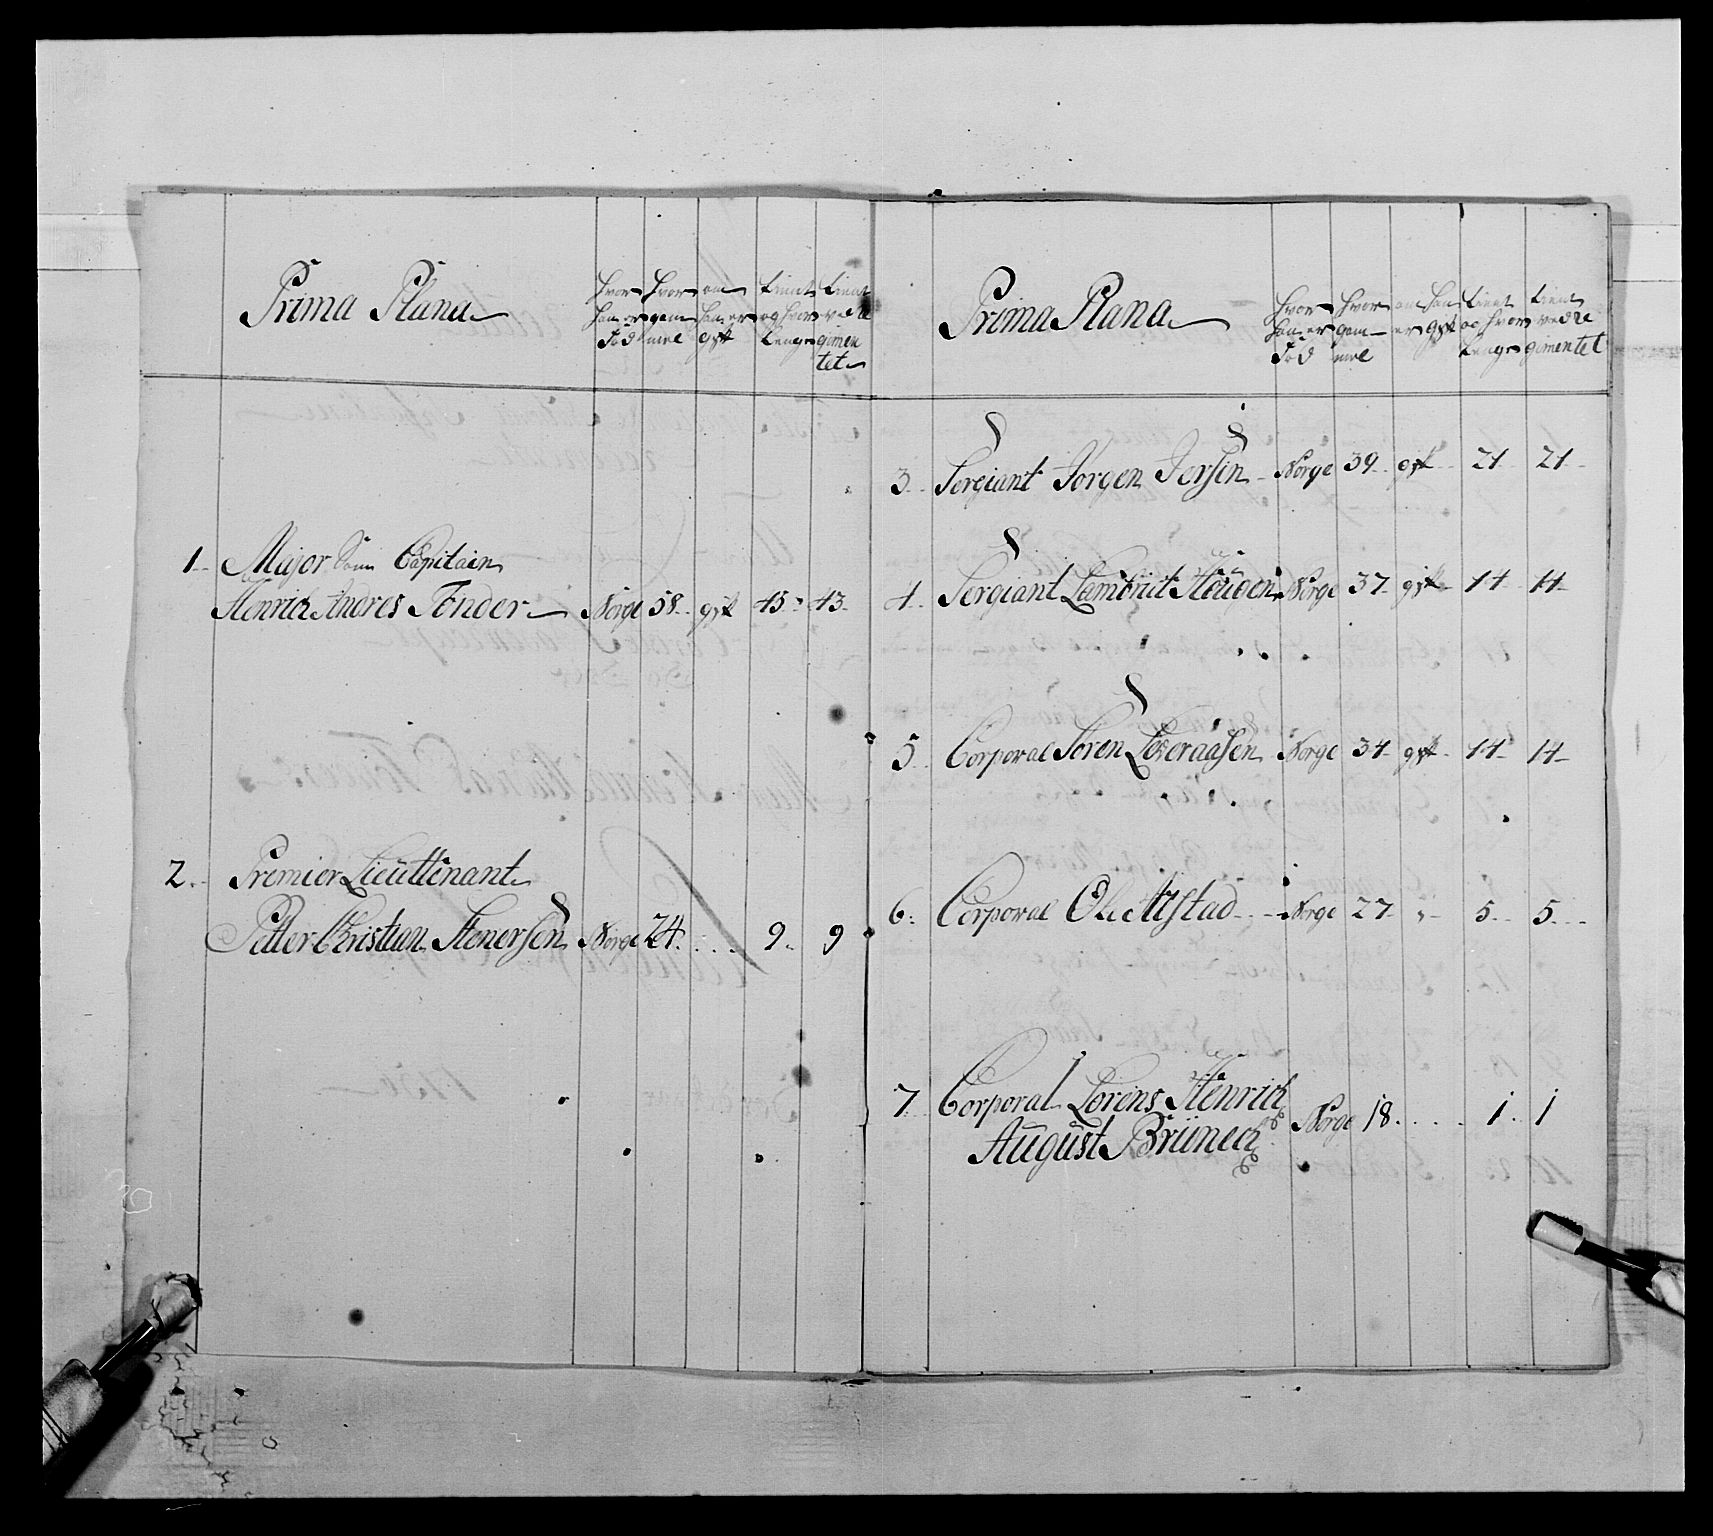 Prima Plana
Hvor han er Fød
Hvor gam mel
om han er gift
tient og hvor lenge
tient ved Re gimen tet
1. Major som Capitain
Henrich Andres Tønder Norge 58 gift 45 43
2. Premier Lieuttenant
Petter Christian Stenersen Norge 24 9 9
Prima Plana
Hvor han er Fød
Hvor gam mel
om han er gift
tient og hvor lenge
tient ved Re gimentet
3. Sergiant Jørgen Jersin Norge 39 gift 21 21
4. Sergiant Lambrict Høugen Norge 37 gift 14 14
5. Corporal Søren Løberaasen Norge 34 gift 14 14
6. Corporal Ole Aystad Norge 27 5 5
7. Corporal Lorens Henrich
August Brünech Norge 18 1 1